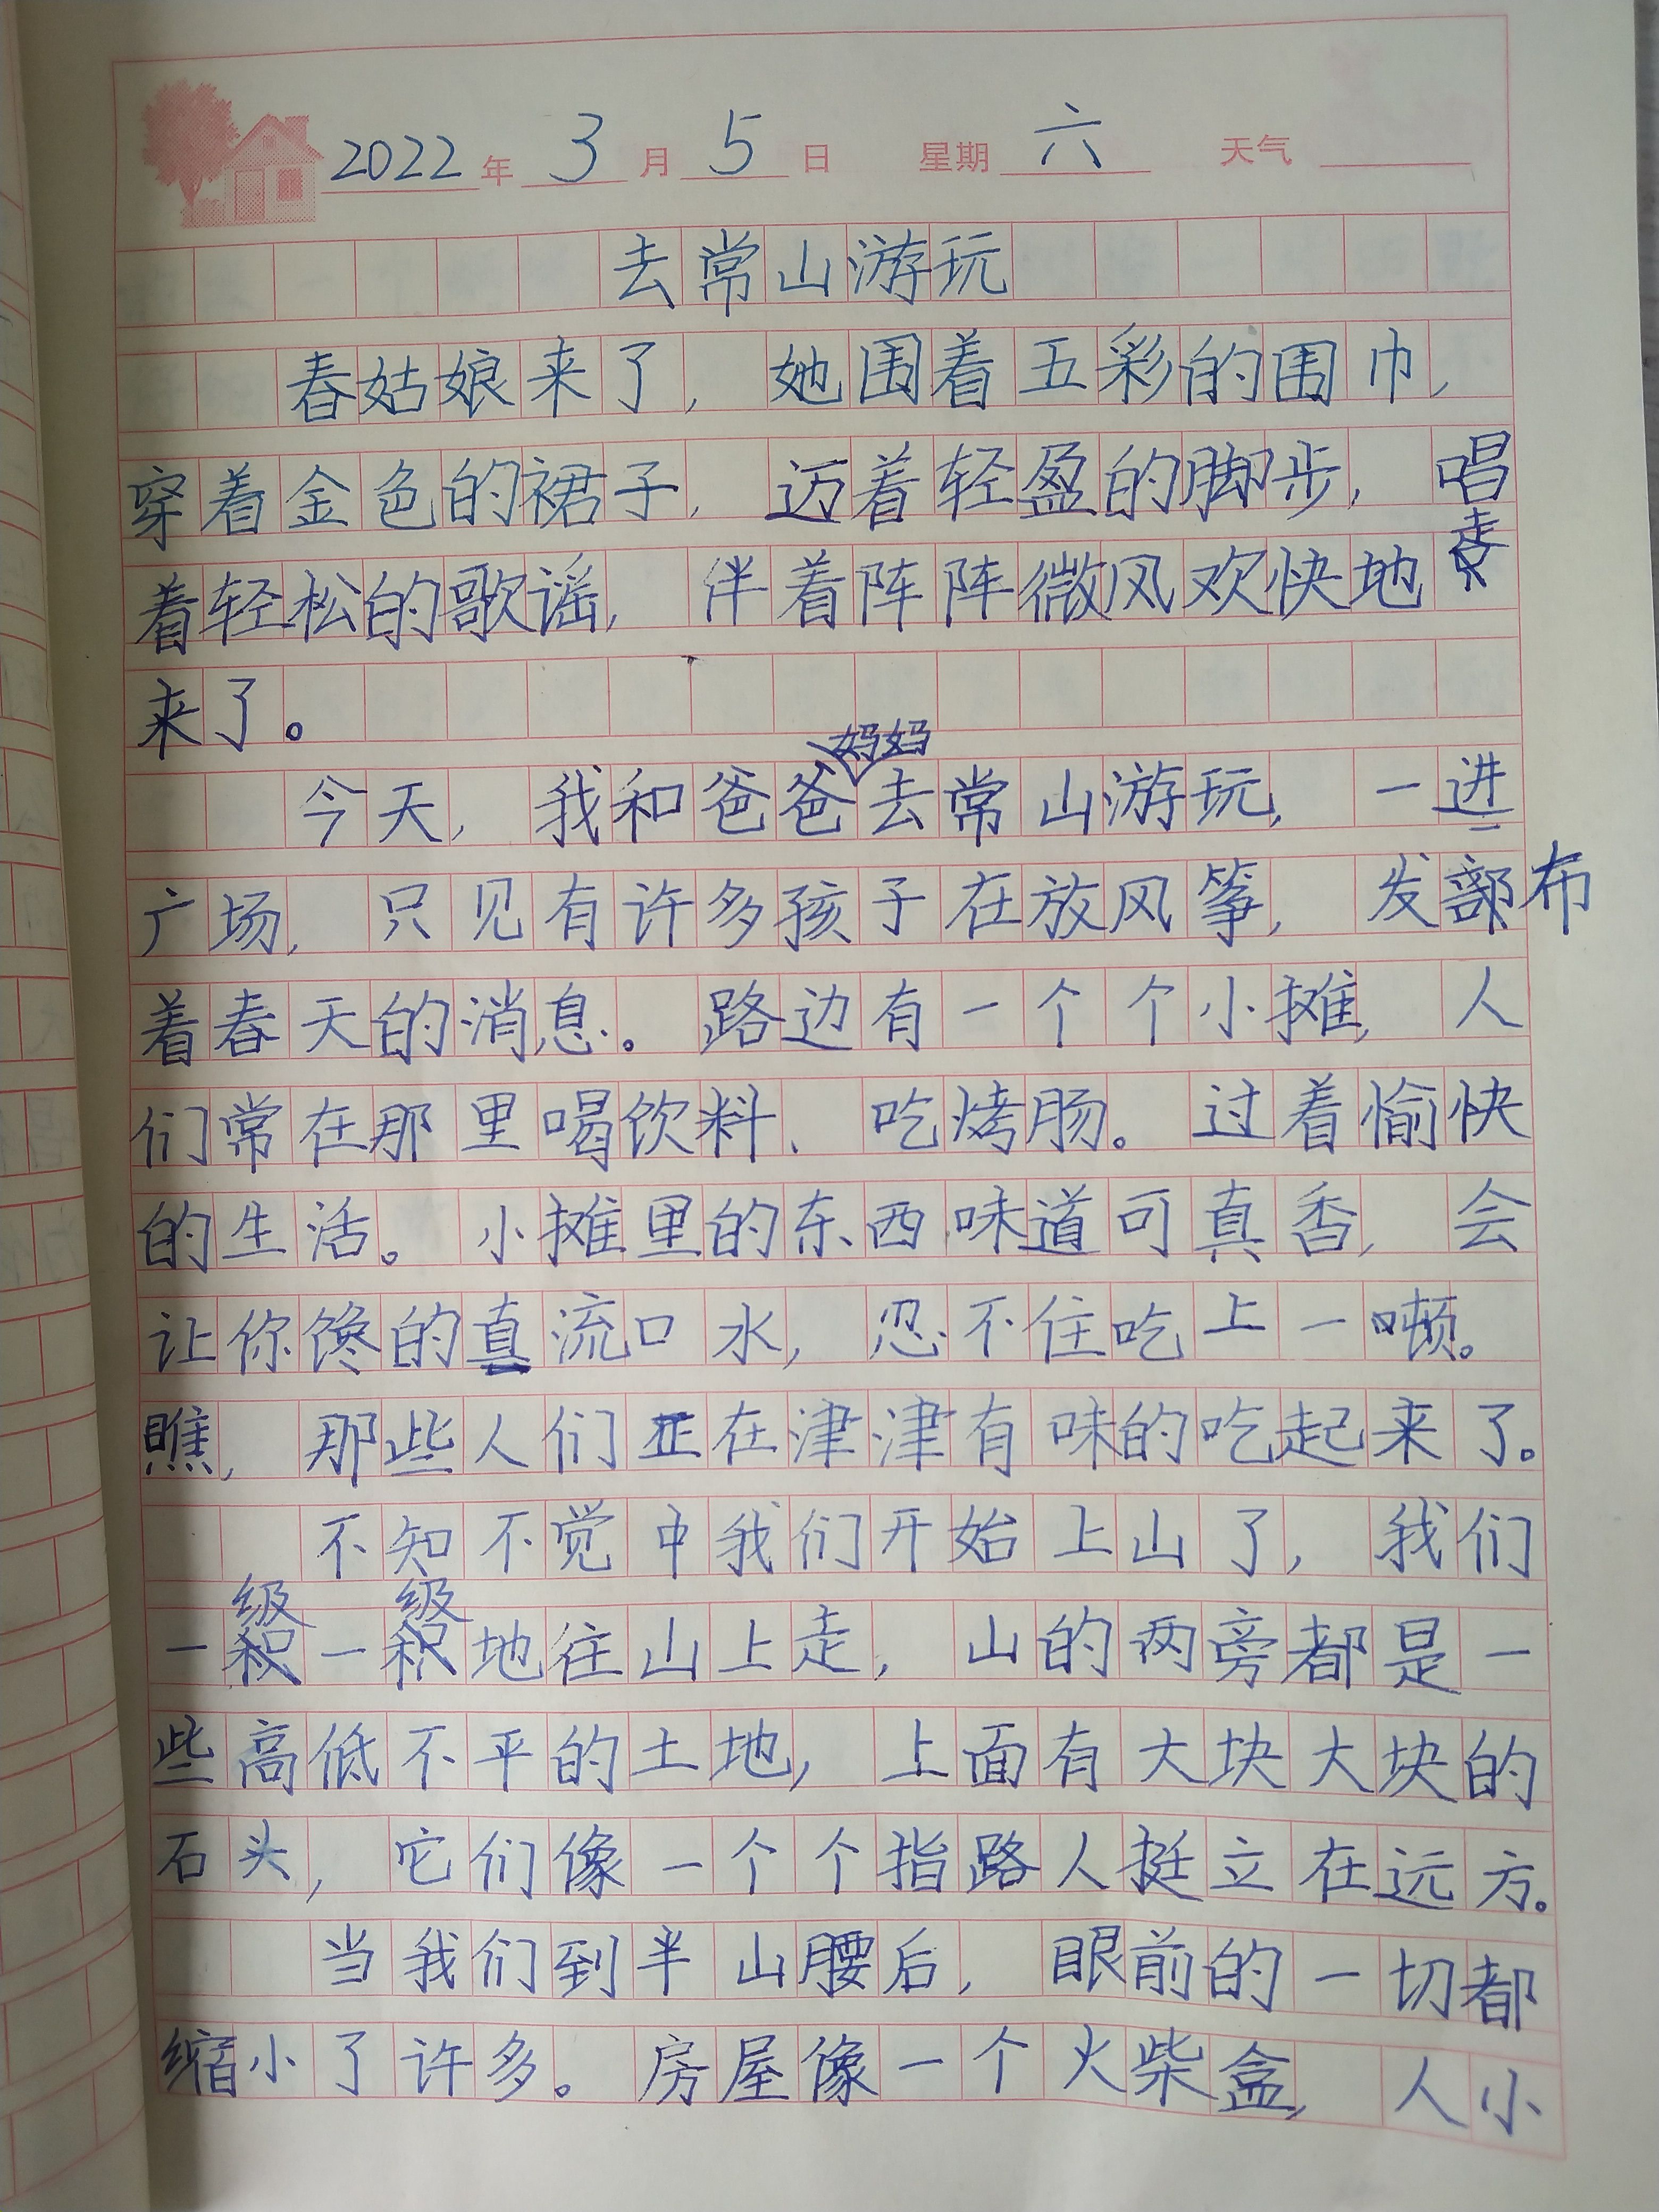 2022年3月5日 星期六 天气
去常山游玩
春姑娘来了，她围着五彩的围巾，
穿着金色的裙子，迈着轻盈的脚步，唱
着轻松的歌谣，伴着阵阵微风欢快地走
来了。
今天，我和爸爸妈妈去常山游玩，一进
广场，只见有许多孩子在放风筝，发布
着春天的消息。路边有一个个小摊，人
们常在那里喝饮料、吃烤肠。过着愉快
的生活。小摊里的东西味道可真香，会
让你馋的直流口水，忍不住吃上一顿。
瞧，那些人们正在津津有味的吃起来了。
不知不觉中我们开始上山了，我们
一级一级地往山上走，山的两旁都是一
些高低不平的土地，上面有大块大块的
石头，它们像一个个指路人挺立在远方。
当我们到半山腰后，眼前的一切都
缩小了许多。房屋像一个火柴盒，人小